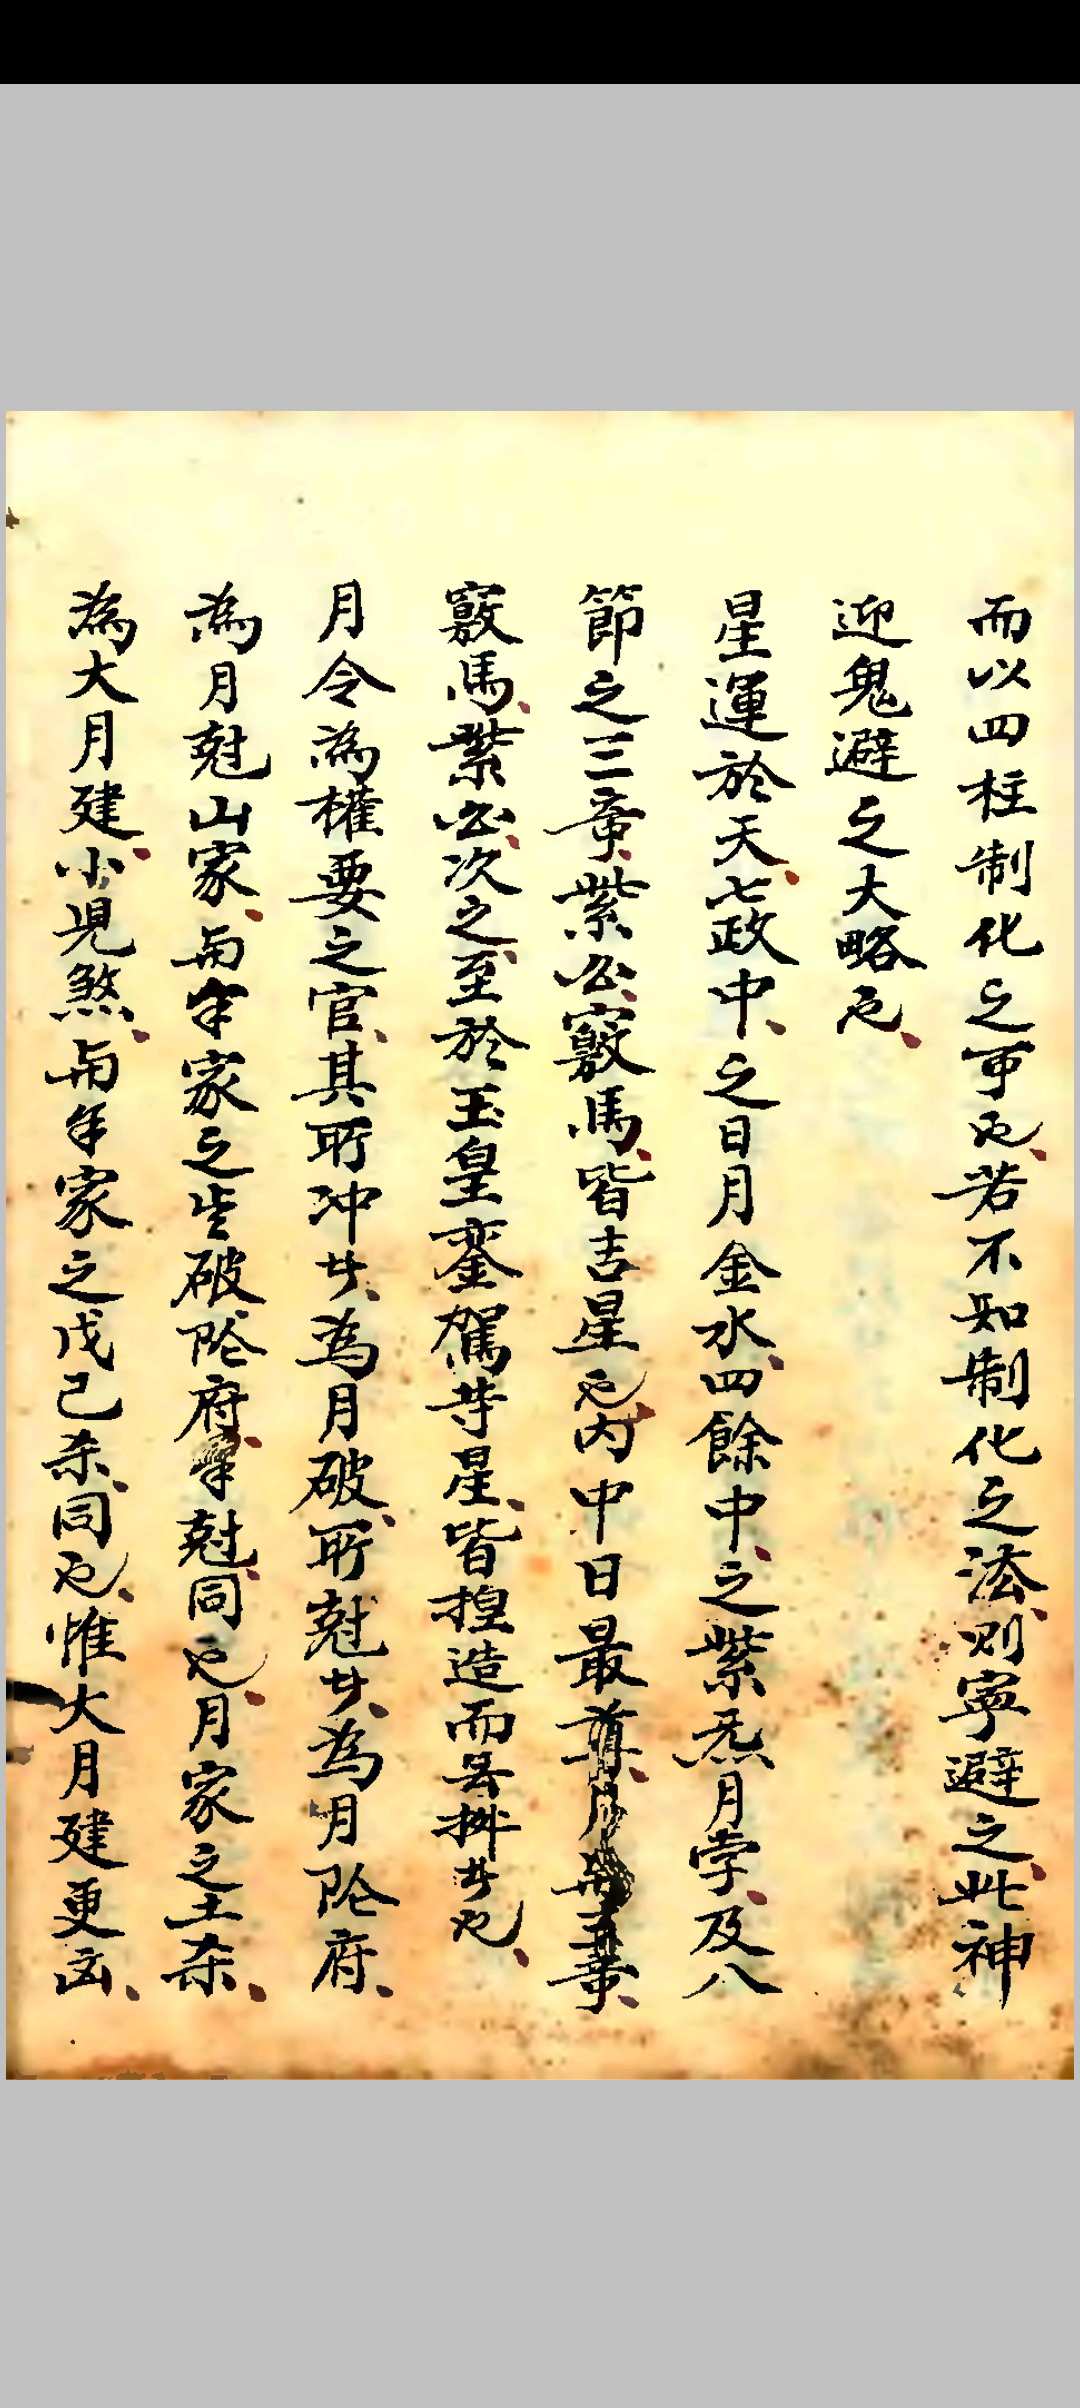 而以四柱制化之可也若不知制化之法則寧避之此神
迎鬼避之大略也
星運於天七政中之日月金水四餘中之紫炁月孛及八
節之三竒紫公竅馬皆吉星也内中日最尊月與三竒
竅馬紫公次之至於玉皇鑾駕等星皆揑造而无㨿者也
月令為權要之官其所冲者為月破所尅者為月陰府
為月尅山家與年家之歲破陰府年尅同也月家之土杀
為大月建小児煞與年家之戊己杀同也惟大月建更凶